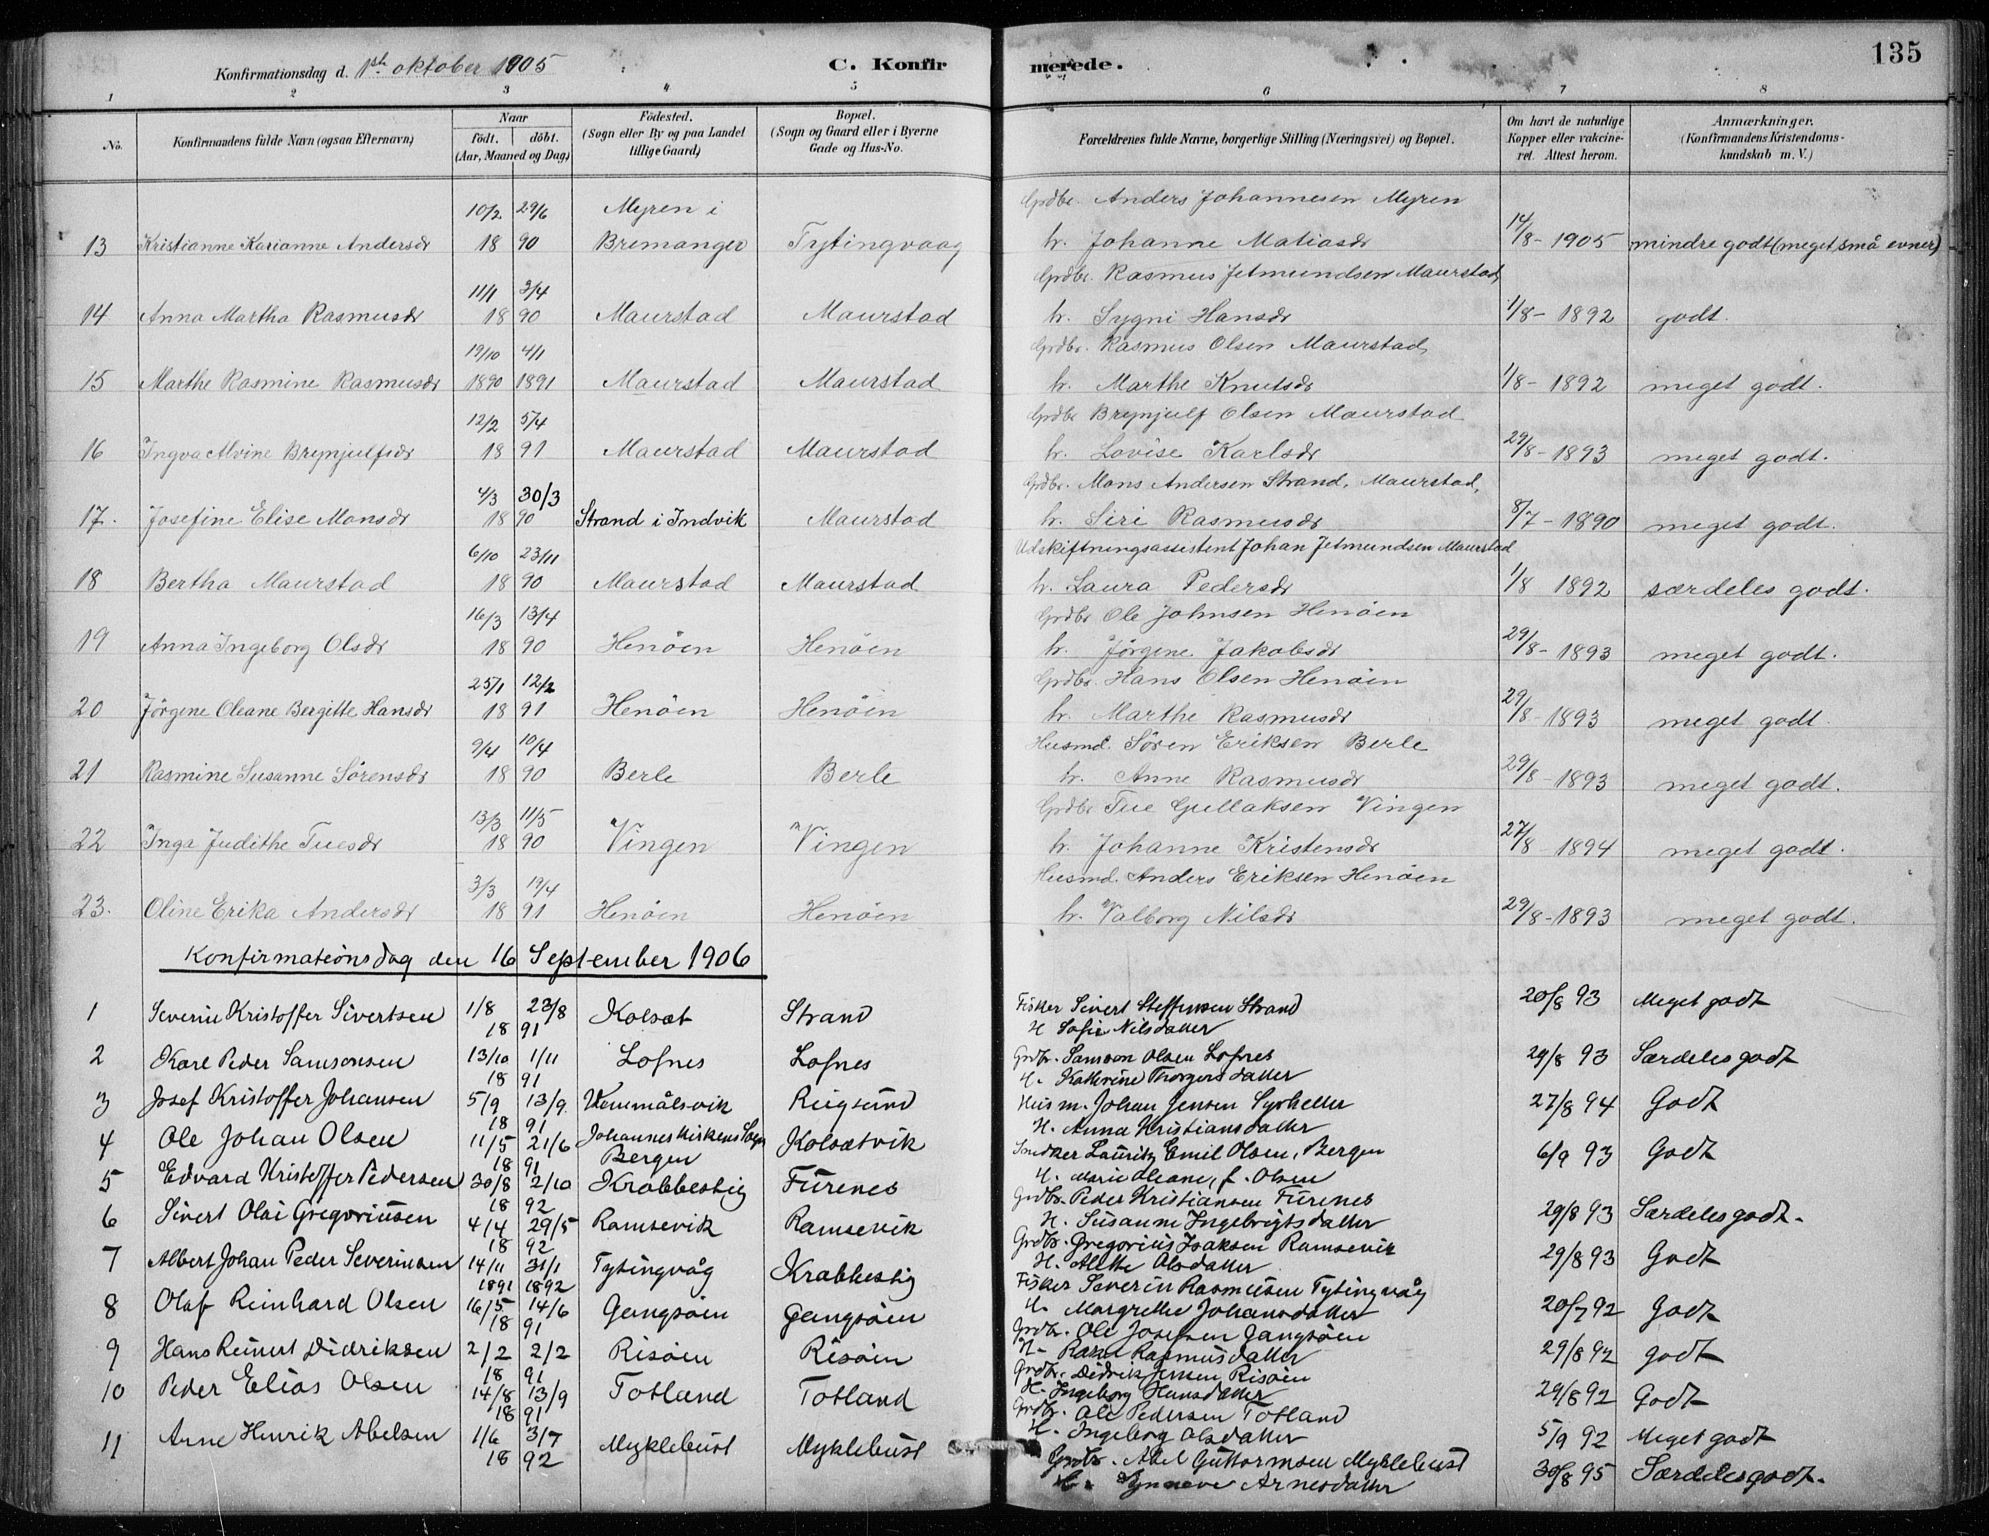 Konfirmationsdag d. 1ste oktober 1905 C. Konfirmerede. 135
1 2 3 4 5 6 7 8
No. Konfirmandens fulde Navn (ogsaa Efternavn) Naar født. døbt. (Aar, Maaned og Dag) Fødested. (Sogn eller By og paa Landet tillige Gaard) Bopæl. (Sogn og Gaard eller i Byerne Gade og Hus-No. Forældrenes fulde Navne, borgerlige Stilling (Næringsvei) og Bopæl. Om havt de naturlige Kopper eller vakcineret. Attest herom. Anmærkninger. (Konfirmandens Kristendomskundskab m. V.)
10/2 29/6 Myren i Grdbr. Anders Johannesen Myren
13 Kristianne Karianne Andersdr 18 90 Bremanger Tytingvaag h. Johanne Matiasdr 14/8 - 1905 mindre godt (meget små evner)
11/1 3/4 Grdbr. Rasmus Jetmundsen Maurstad
14 Anna Martha Rasmusdr 18 90 Maurstad Maurstad h. Sygni Hansdr 1/8 - 1892 godt.
19/10 4/1 Grdbr. Rasmus Olsen Maurstad
15 Marthe Rasmine Rasmusdr 1890 1891 Maurstad Maurstad h. Marthe Knutsdr 1/8 - 1892 meget godt.
12/2 5/4 Grdbr Brynjulf Olsen Maurstad
16 Ingva Alvine Brynjulfsdr 18 91 Maurstad Maurstad h. Lovise Karlsdr 29/8 - 1893 meget godt.
4/3 30/3 Grdbr. Mons Andersen Strand, Maurstad,
17. Josefine Elise Monsdr 18 90 Strand i Indvik Maurstad h. Siri Rasmusdr 8/7 - 1890 meget godt.
6/10 23/11 Udskiftningsassistent Johan Jetmundsen Maurstad
18 Bertha Maurstad 18 90 Maurstad Maurstad h. Laura Pedersdr 1/8 1892 særdeles godt.
16/3 13/4 Grdbr Ole Johnsen Henøen
19 Anna Ingeborg Olsdr 18 90 Henøen Henøen h. Jørgene Jakobsdr 29/8 - 1893 meget godt.
25/1 12/2 Grdbr. Hans Olsen Henøen
20 Jørgene Oleane Bergitte Hansdr 18 91 Henøen Henøen h. Marthe Rasmusdr 29/8 - 1893 meget godt.
9/4 10/4 Husmd. Søren Eriksen Berle
21 Rasmine Susanne Sørensdr 18 90 Berle Berle h. Anne Rasmusdr 29/8 - 1893 meget godt.
13/3 11/5 Grdbr Tue Gullaksen Vingen
22 Inga Judithe Tuesdr 18 90 Vingen Vingen h. Johanne Kristensdr 27/8 - 1894 meget godt.
3/3 19/4 Husmd. Anders Eriksen Henøen
23. Oline Erika Andersdr 18 91 Henøen Henøen h. Valborg Nilsdr 29/8 - 1893 meget godt.
Konfirmationsdag den 16 September 1906
1 Severin Kristoffer Sivertsen 1/8 23/8 Kolsæt Strand Fisker Sivert Steffensen Strand 20/8 93 Meget godt
18 91 H Sofie Nilsdatter
2 Karl Peder Samsonsen 13/10 1/11 Lofnes Lofnes Grdbr. Samson Olsen Lofnes 29/8 93 Særdeles godt
18 91 H. Kathrine Thorgersdatter
3 Josef Kristoffer Johansen 5/9 13/9 Vemmålsvik Rugsund Husm. Johan Jensen 27/8 94 Godt
18 91 H. Anna Kristiansdatter
4 Ole Johan Olsen 11/5 21/6 Johanneskirkens Sogn Bergen Kolsætvik Snedker Lauritz Emil Olsen, Bergen 6/9 93 Godt
18 91 H. Marie Oleane, f. Olsen
5 Edvard Kristoffer Pedersen 30/8 2/10 Krabbestig Furenes Grdbr. Peder Kristiansen Furenes 29/8 93 Særdeles godt.
18 92 H. Susanne Ingebrigtsdatter
6 Sivert Olai Gregoriusen 4/4 29/5 Ramsevik Ramsevik Grdbr. Gregorius Isaksen Ramsevik 29/8 93 Godt
18 92 H. Alette Olsdatter
7 Albert Johan Peder Severinsen 14/11 31/1 Tytingvåg Krabbestig Fisker Severin Rasmussen Tytingvåg 20/7 92 Godt
1891 1892 H. Margrethe Johansdatter
8 Olaf Reinhard Olsen 16/5 14/6 Gangsøen Gangsøen Grdbr. Ole Josefsen Gangsøen 29/8 92 godt
18 91 H. Rasmusdatter
9 Hans Reinert Didriksen 2/2 2/2 Risøen Risøen Grdbr. Didrik Jensen Risøen 29/8 92 Godt
18 91 H. Ingeborg Hansdatter
10 Peder Elias Olsen 14/8 13/9 Totland Totland Grdbr. Ole Pedersen Totland 5/9 92 Meget godt
18 91 H. Ingeborg Olsdatter
11 Arne Henrik Abelsen 1/6 3/7 Myklebust Myklebust Grdbr. Abel Guttormsen Myklebust 30/8 95 Særdeles godt.
18 92 H. Synneve Arnesdatter